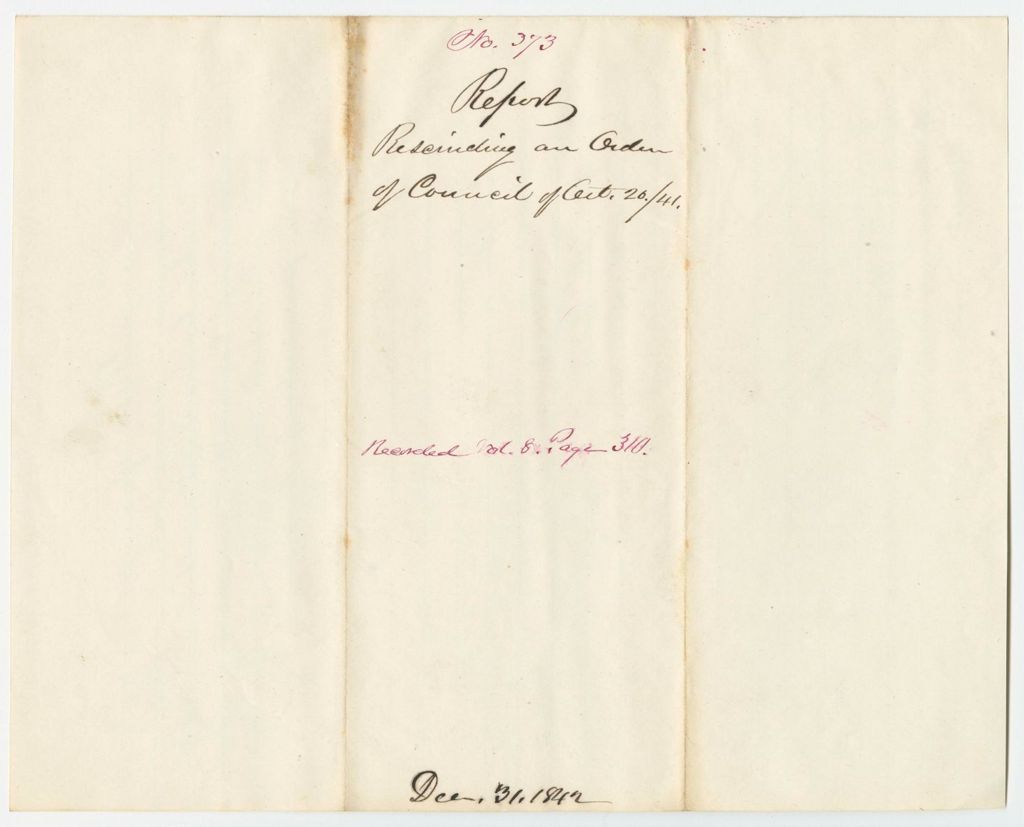 No. 373
Report
Rescinding an Order
of Council of Oct. 20./41.
Recorded Vol. 8. Page 310.
Dec. 31. 1842